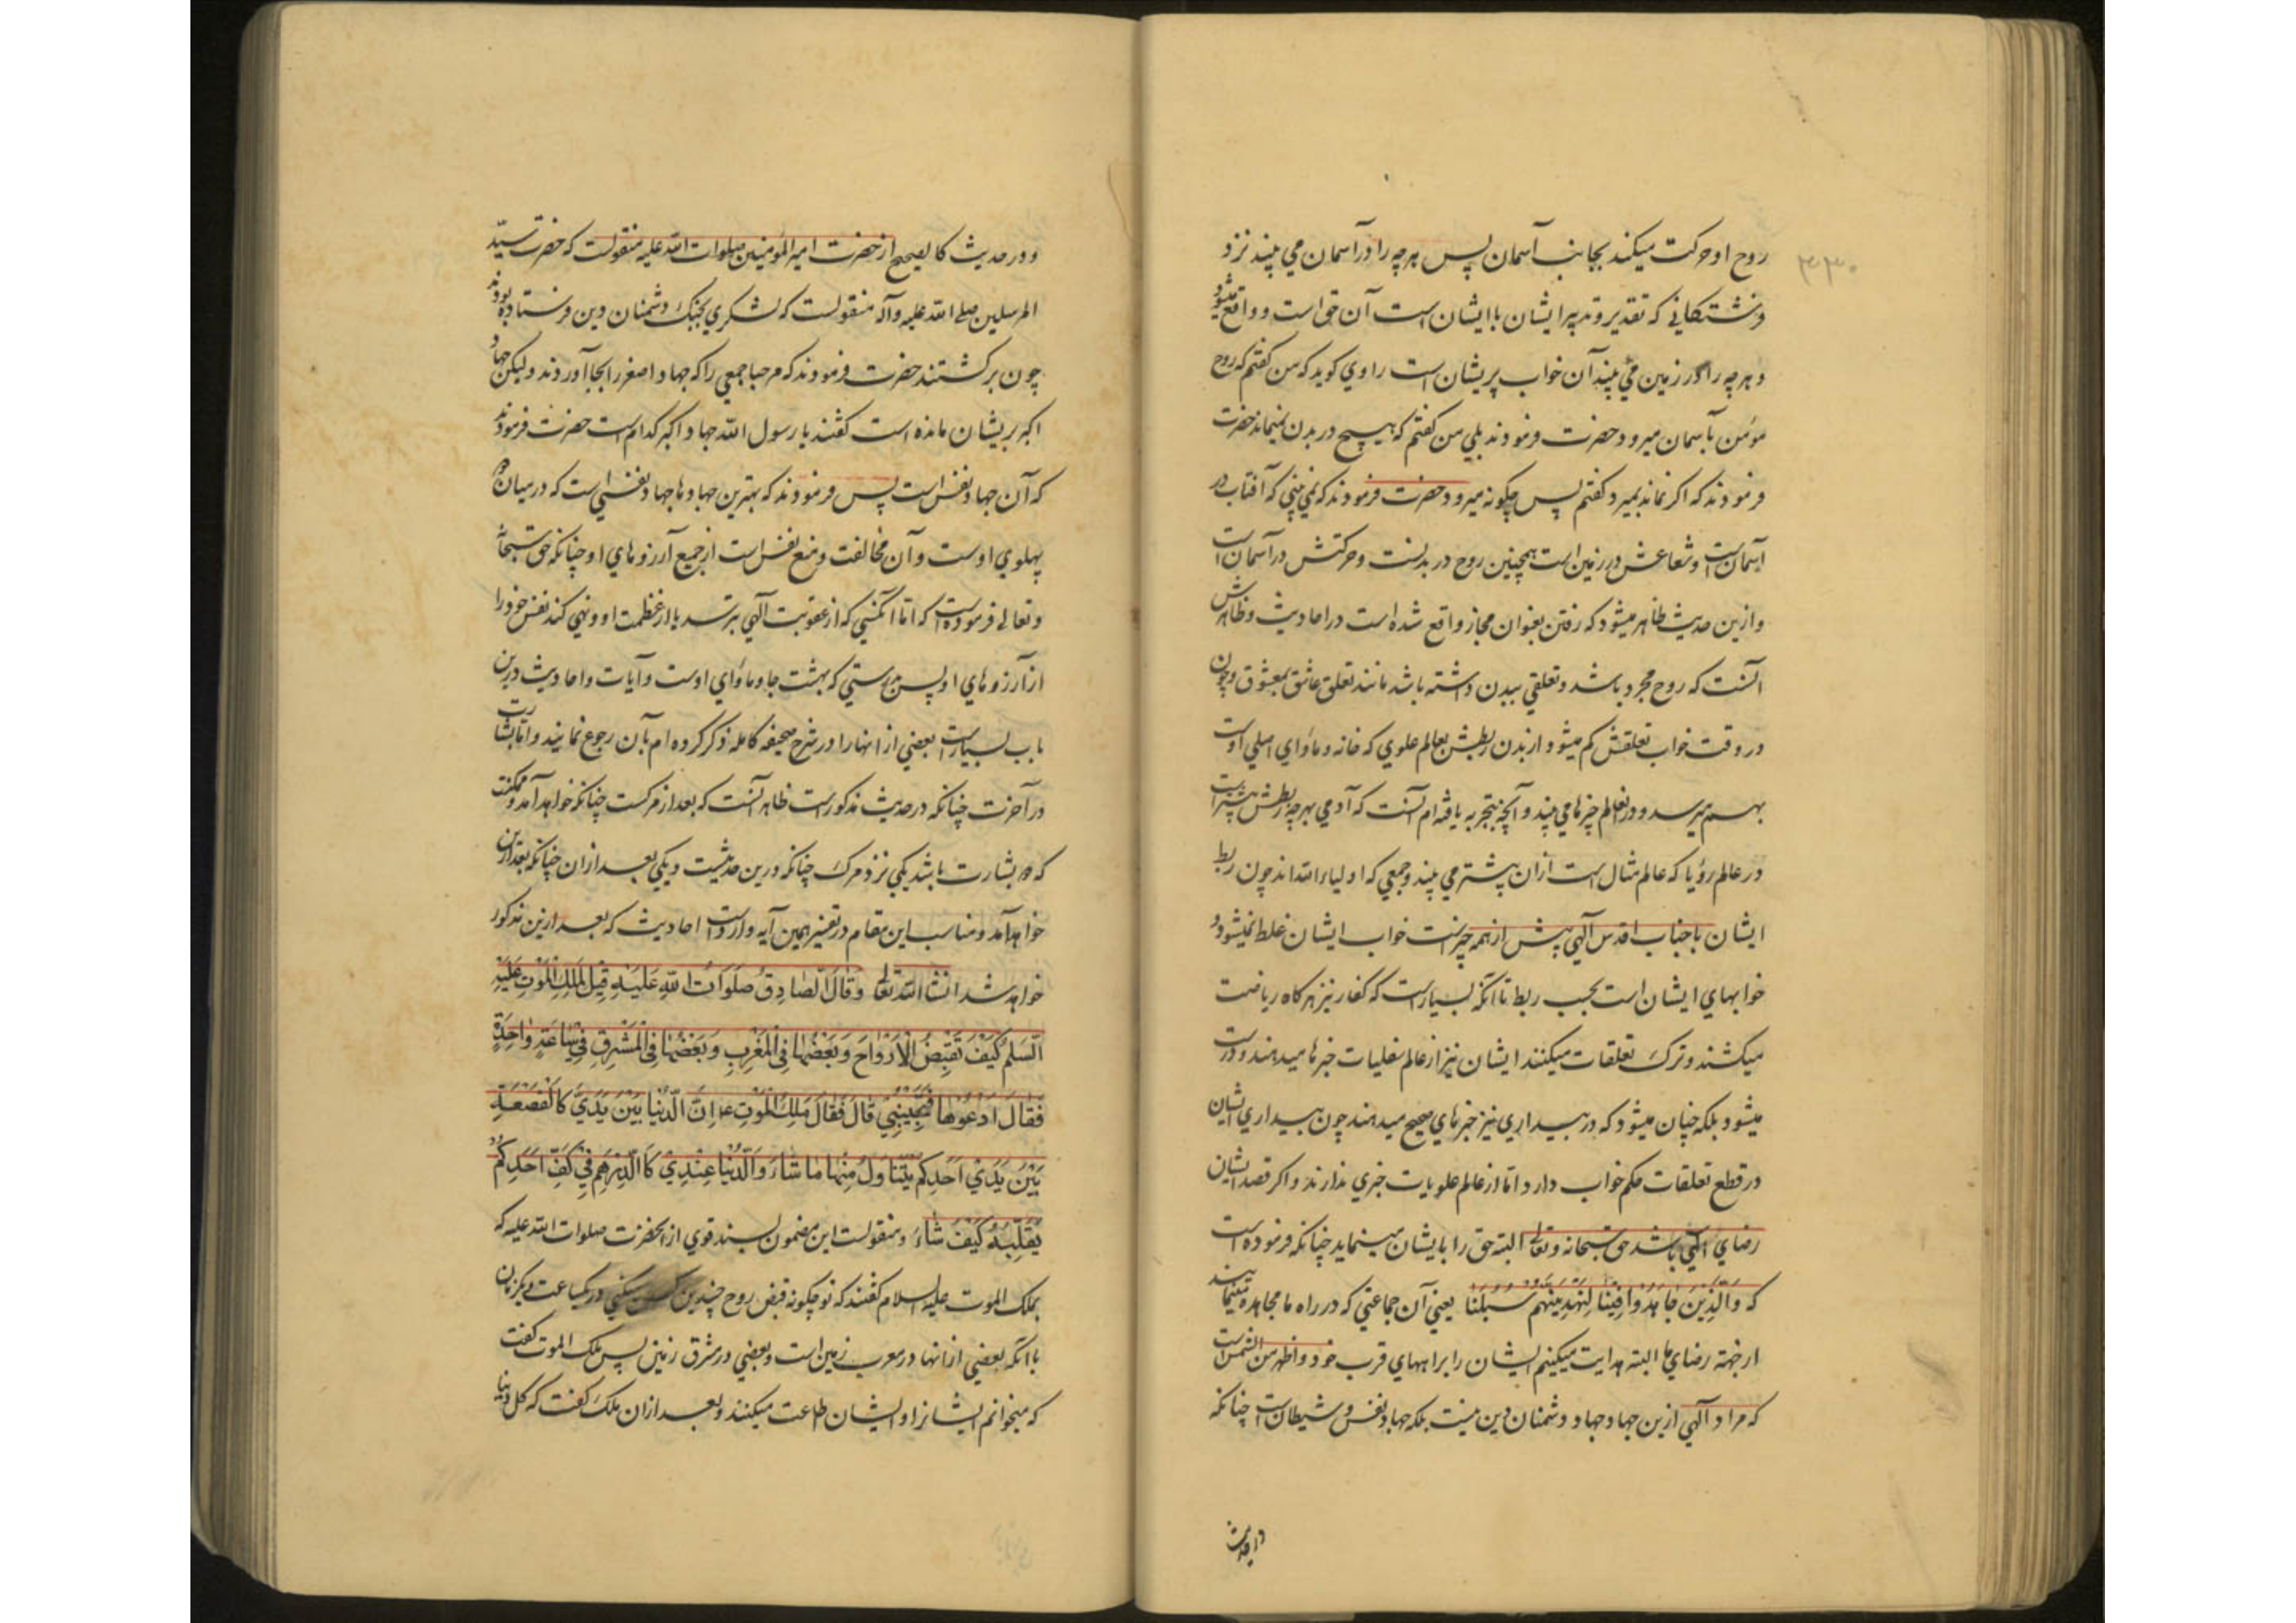 ۳۳۰
روح او حرکت میکند بجانب آسمان پس هر چه را در آسمان می بیند نزد
فرشتکانی که تقدیر و تدبیر ایشان با ایشان است آن حق است و واقع میشود
و هر چه را در زمین می بیند آن خواب پریشان است راوی کوید که من کفتم که روح
مؤمن بآسمان میرود حضرت فرمودند بلی من کفتم که هیچ در بدن نمیماند حضرت
فرمودند که اکر نماند بمیرد کفتم پس چکونه میرود حضرت فرمودند که نمی بینی که آفتاب در
آسمان است و شعاعش در زمین است همچنین روح در بدنست و حرکتش در آسمان است
و ازین حدیث ظاهر میشود که رفتن بعنوان مجاز واقع شده است در احادیث و ظاهرش
آنست که روح مجرد باشد و تعلقی ببدن داشته باشد مانند تعلق عاشق بمعشوق و چون
در وقت خواب تعلقش کم میشود از بدن ربطش بعالم علوی که خانه و مأوای اصلی اوست
بهم میرسد و در انعالم چیزها می بیند و آنچه بتجربه یافته ام آنست که آدمی بهر چه ربطش بیشتر است
در عالم رؤیا که عالم مثال است از ان بیشتر می بیند و جمعی که اولیاء الله اند چون ربط
ایشان با جناب اقدس آلهی بیش از همه چیزست خواب ایشان غلط نمیشود و
خوابهای ایشان است بحسب ربط تا انکه بسیار است که کفار نیز هرکاه ریاضت
میکشند و ترک تعلقات میکنند ایشان نیز از عالم سفلیات خبرها میدهند و درست
میشود بلکه چنان میشود که در بیداری نیز خبرهای صحیح میدهند چون بیداری ایشان
در قطع تعلقات حکم خواب دارد و اما از عالم علویات خبری ندارند و اکر قصد ایشان
رضای آلهی باشد حق سبحانه و تعالی البته حق را بایشان مینماید چنانکه فرموده است
که وَالَّذِینَ جَاهَدُوا فِینَا لَنَهْدِیَنَّهُمْ سُبُلَنَا یعنی آن جماعتی که در راه ما مجاهده مینمایند
از جهة رضای ما البته هدایت میکنیم ایشان را براههای قرب خود و اظهر من الشمس است
که مراد آلهی ازین جهاد جهاد دشمنان دین نیست بلکه جهاد نفس و شیطان است چنانکه
در حدیث
و در حدیث کالصحیح از حضرت امیر المؤمنین صلوات الله علیه منقولست که حضرت سیّد
المرسلین صلی الله علیه وآله منقولست که لشکری بجنک دشمنان دین فرستاده بودند
چون برکشتند حضرت فرمودند که مرحبا جمعی را که جهاد اصغر را بجا آوردند ولیکن جهاد
اکبر بریشان مانده است کفتند یا رسول الله جهاد اکبر کدام است حضرت فرمودند
که آن جهاد نفس است پس فرمودند که بهترین جهادها جهاد نفسی است که در میان دو
پهلوی اوست و آن مخالفت و منع نفس است از جمیع آرزوهای او چنانکه حق سبحانه
و تعالی فرموده است که اما آنکسی که از عقوبت آلهی بترسد یا از عظمت او و نهی کند نفس خود را
از آرزوهای او پس بدرستی که بهشت جا و مأوای اوست و آیات و احادیث درین
باب بسیار است بعضی از انها را در شرح صحیفه کامله ذکر کرده ام بآن رجوع نمایند و اما بشارت
در آخرت چنانکه در حدیث مذکور است ظاهر آنست که بعد از مرکست چنانکه خواهد آمد و ممکنست
که دو بشارت باشد یکی نزد مرک چنانکه درین حدیثست و یکی بعد از ان چنانکه بعد ازین
خواهد آمد و مناسب این مقام در تفسیر همین آیه وارد است احادیث که بعد ازین مذکور
خواهد شد انشاء الله تعالی وَقَالَ الصَّادِقُ صَلَوَاتُ اللهِ عَلَیْهِ قِیلَ لِمَلَکِ الْمَوْتِ عَلَیْهِ
السَّلَمُ کَیْفَ تَقْبِضُ الْأَرْوَاحَ وَبَعْضُهَا فِی الْمَغْرِبِ وَبَعْضُهَا فِی الْمَشْرِقِ فِی سَاعَةٍ وَاحِدَةٍ
فَقَالَ اَدْعُوهَا فَتُجِیبُنِی قَالَ فَقَالَ مَلَکُ الْمَوْتِ ع اِنَّ الدُّنْیَا بَیْنَ یَدَیَّ کَالْقَصْعَةِ
بَیْنَ یَدَیْ اَحَدِکُمْ یَتَنَاوَلُ مِنْهَا مَا شَاءَ وَالدُّنْیَا عِنْدِی کَالدِّرْهَمِ فِی کَفِّ اَحَدِکُمْ
یُقَلِّبُهُ کَیْفَ شَاءَ و منقولست این مضمون بسند قوی از آنحضرت صلوات الله علیه که
بملک الموت علیه السلام کفتند که تو چکونه قبض روح چندین کس میکنی در یکساعت و یکزمان
با آنکه بعضی از انها در مغرب زمین است و بعضی در مشرق زمین پس ملک الموت کفت
که میخوانم ایشانرا و ایشان اطاعت میکنند و بعد از ان ملک کفت که کل دنیا